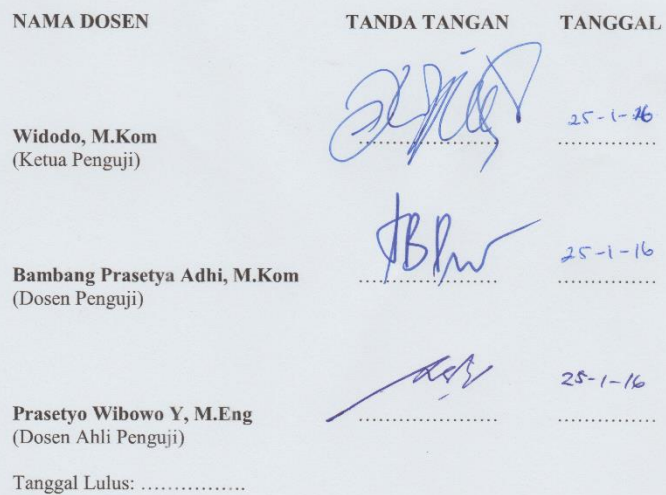 NAMA DOSEN TANDA TANGAN TANGGAL
25-1-16
Widodo, M.Kom ....................
(Ketua Penguji)
25-1-16
Bambang Prasetya Adhi, M.Kom ....................
(Dosen Penguji)
25-1-16
Prasetyo Wibowo Y, M.Eng ....................
(Dosen Ahli Penguji)
Tanggal Lulus: ................